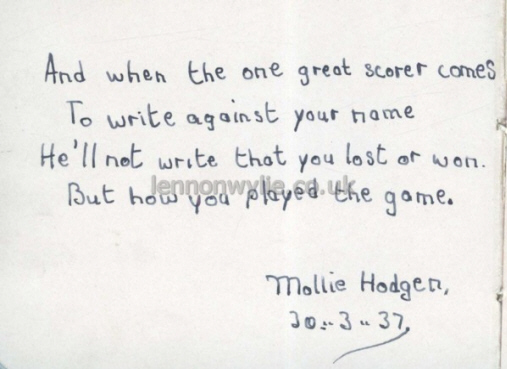 And when the one great scorer comes
To write against your name
He'll not write that you lost or won.
But how you played the game.
lennonwylie.co.uk
Mollie Hodgen,
30..3..37.